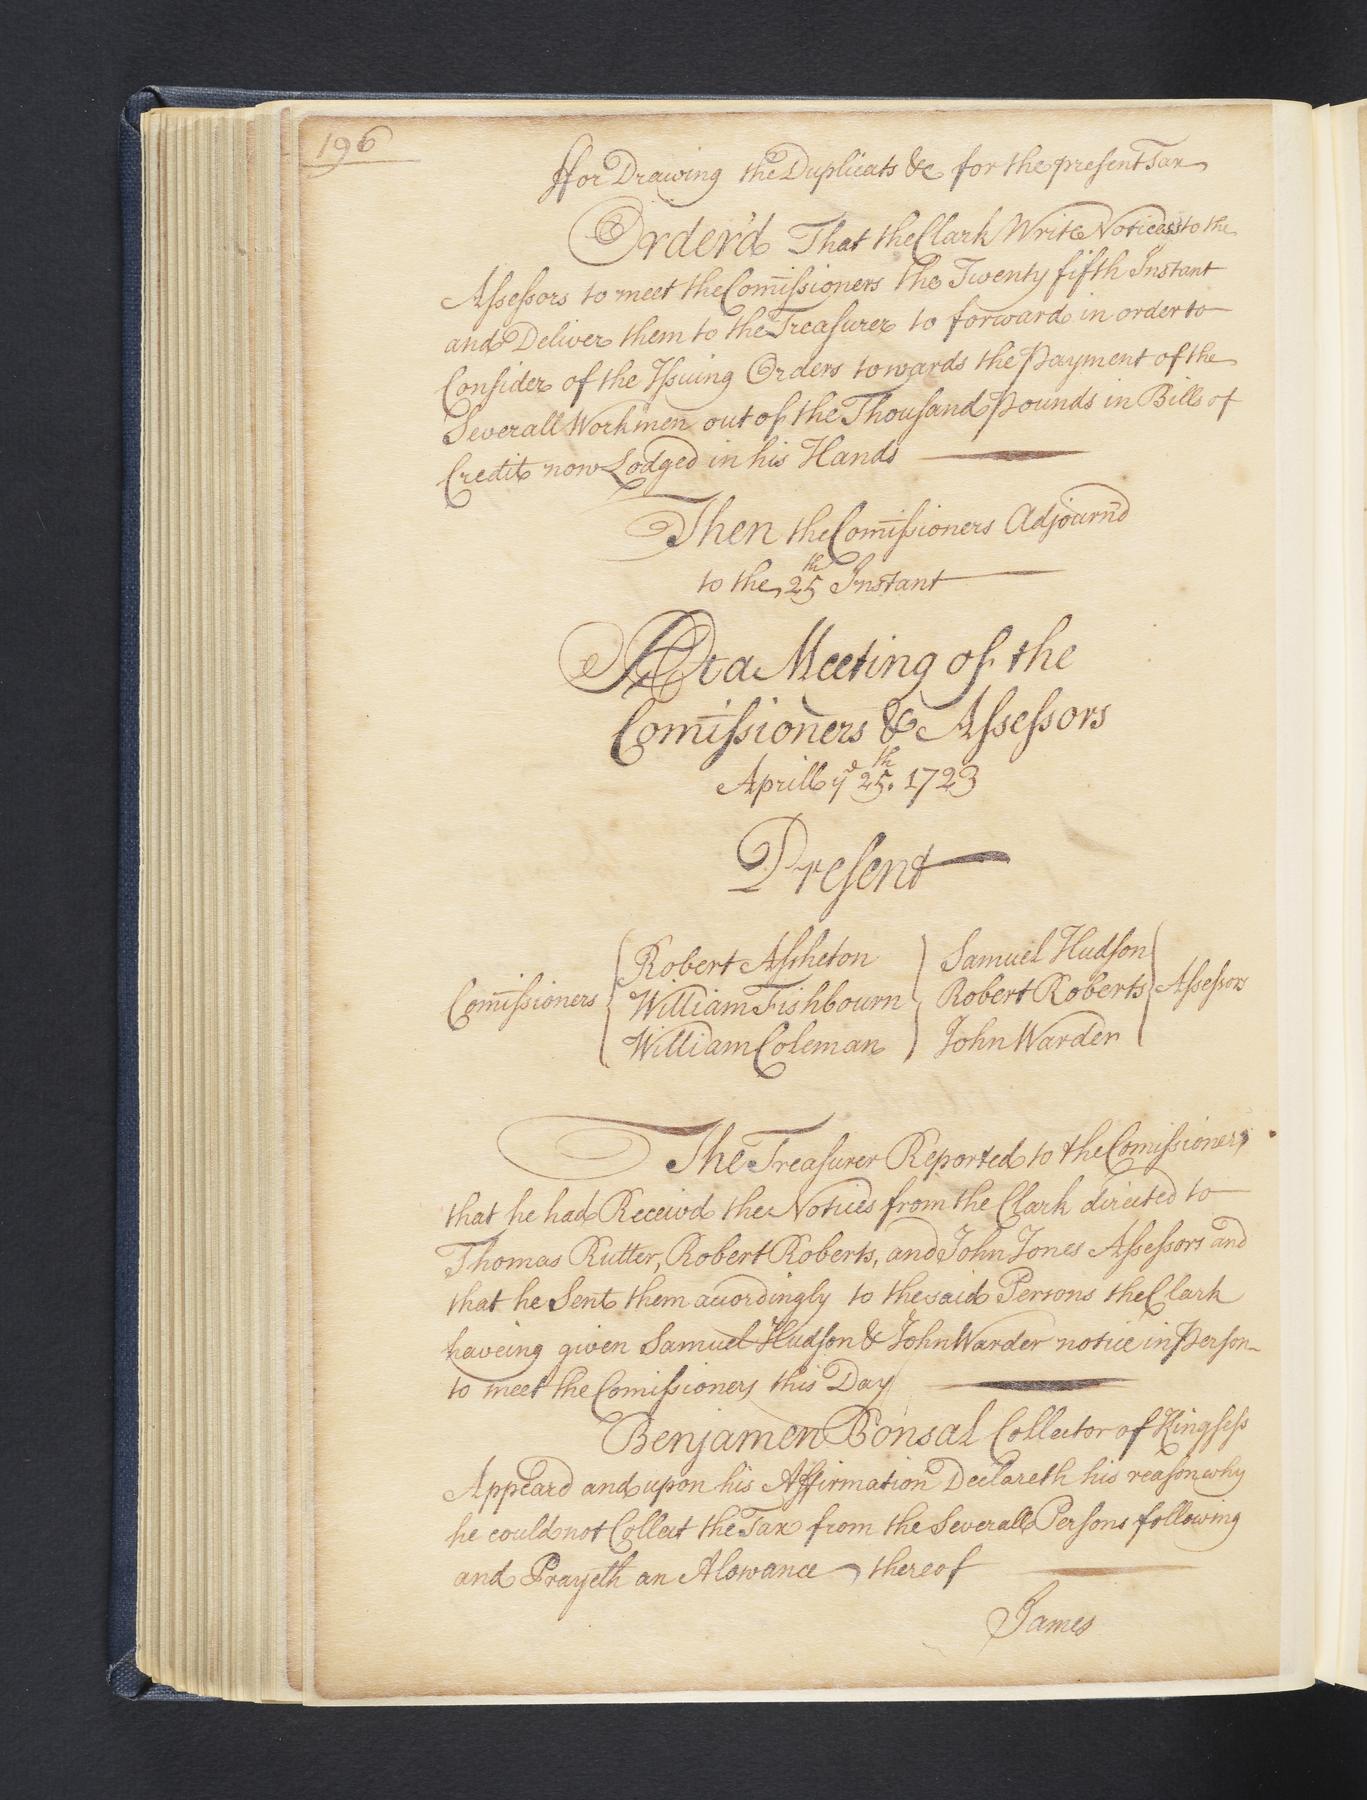 196
ffor Drawing the Duplicats &c for the present Tax
Order'd That the Clark Write Notices to the
Assessors to meet the Comissioners the Twenty fifth Instant
and Deliver them to the Treasurer to forward in order to
Consider of the Issuing Orders towards the Payment of the
Severall Workmen out of the Thousand Pounds in Bills of
Credit now Lodged in his Hands
Then the Comissioners Adjourn'd
to the 25th Instant
At a Meeting of the
Comissioners & Assessors
Aprill ye 25th. 1723
Present
Comissioners { Robert Assheton } Samuel Hudson } Assessors
William Fishbourn Robert Roberts
William Coleman John Warden
The Treasurer Reported to the Comissioners
that he had Receivd the Notices from the Clark directed to
Thomas Rutter, Robert Roberts, and John Jones Assessors and
that he Sent them acordingly to the said Persons the Clark
haveing given Samuel Hudson & John Warder notice in Person
to meet the Comissioners this Day
Benjamen Bonsal Collector of Kingsess
Appeard and upon his Affirmation Declareth his reason why
he could not Collect the Tax from the Severall Persons following
and Prayeth an Alowance thereof
James